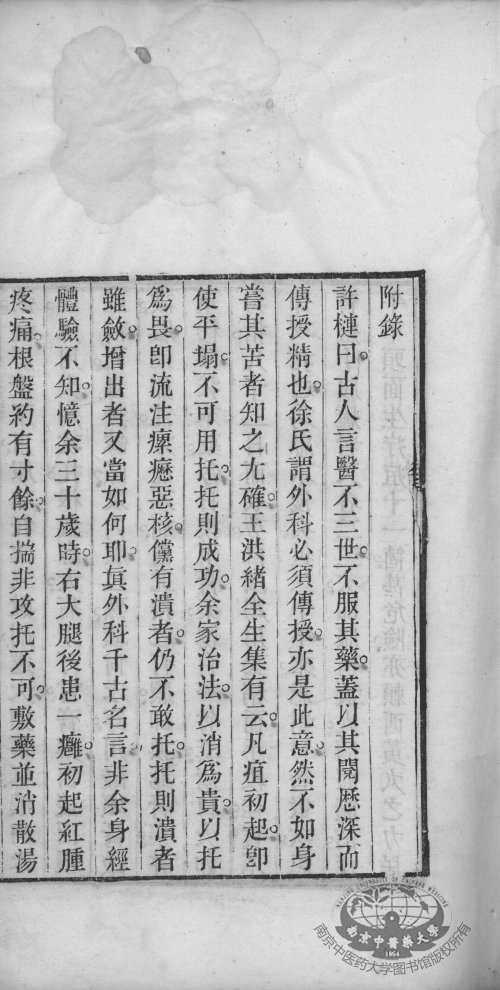 附錄
許槤曰。古人言醫不三世。不服其藥。蓋以其閱歷深而
傳授精也。徐氏謂外科必須傳授。亦是此意。然不如身
嘗其苦者知之尢確。王洪緒全生集有云。凡疽初起。卽
使平塌。不可用托。托則成功。余家治法。以消爲貴。以托
爲畏。卽流注瘰癧惡核。儻有潰者。仍不敢托。托則潰者
雖斂。增出者又當如何耶。眞外科千古名言。非余身經
體驗不知。憶余三十歲時。右大腿後患一癰。初起紅腫
疼痛。根盤約有寸餘。自揣非攻托不可。敷藥並消散湯
南京中醫藥大學
1954
南京中医药大学图书馆版权所有